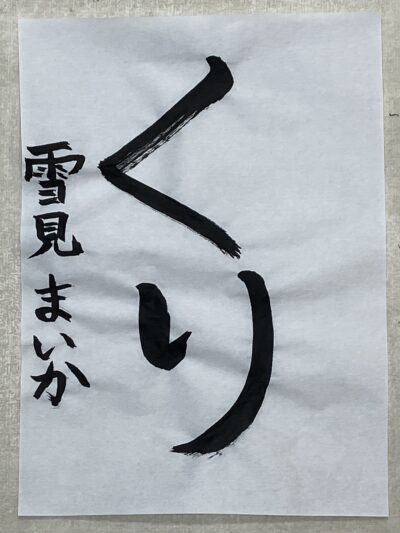 くり
雪見 まいか